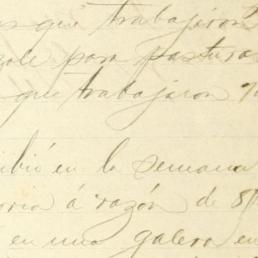 que trabajaron
para pasturas
que trabajaron
en la semana
á razón de 8
en una galera en